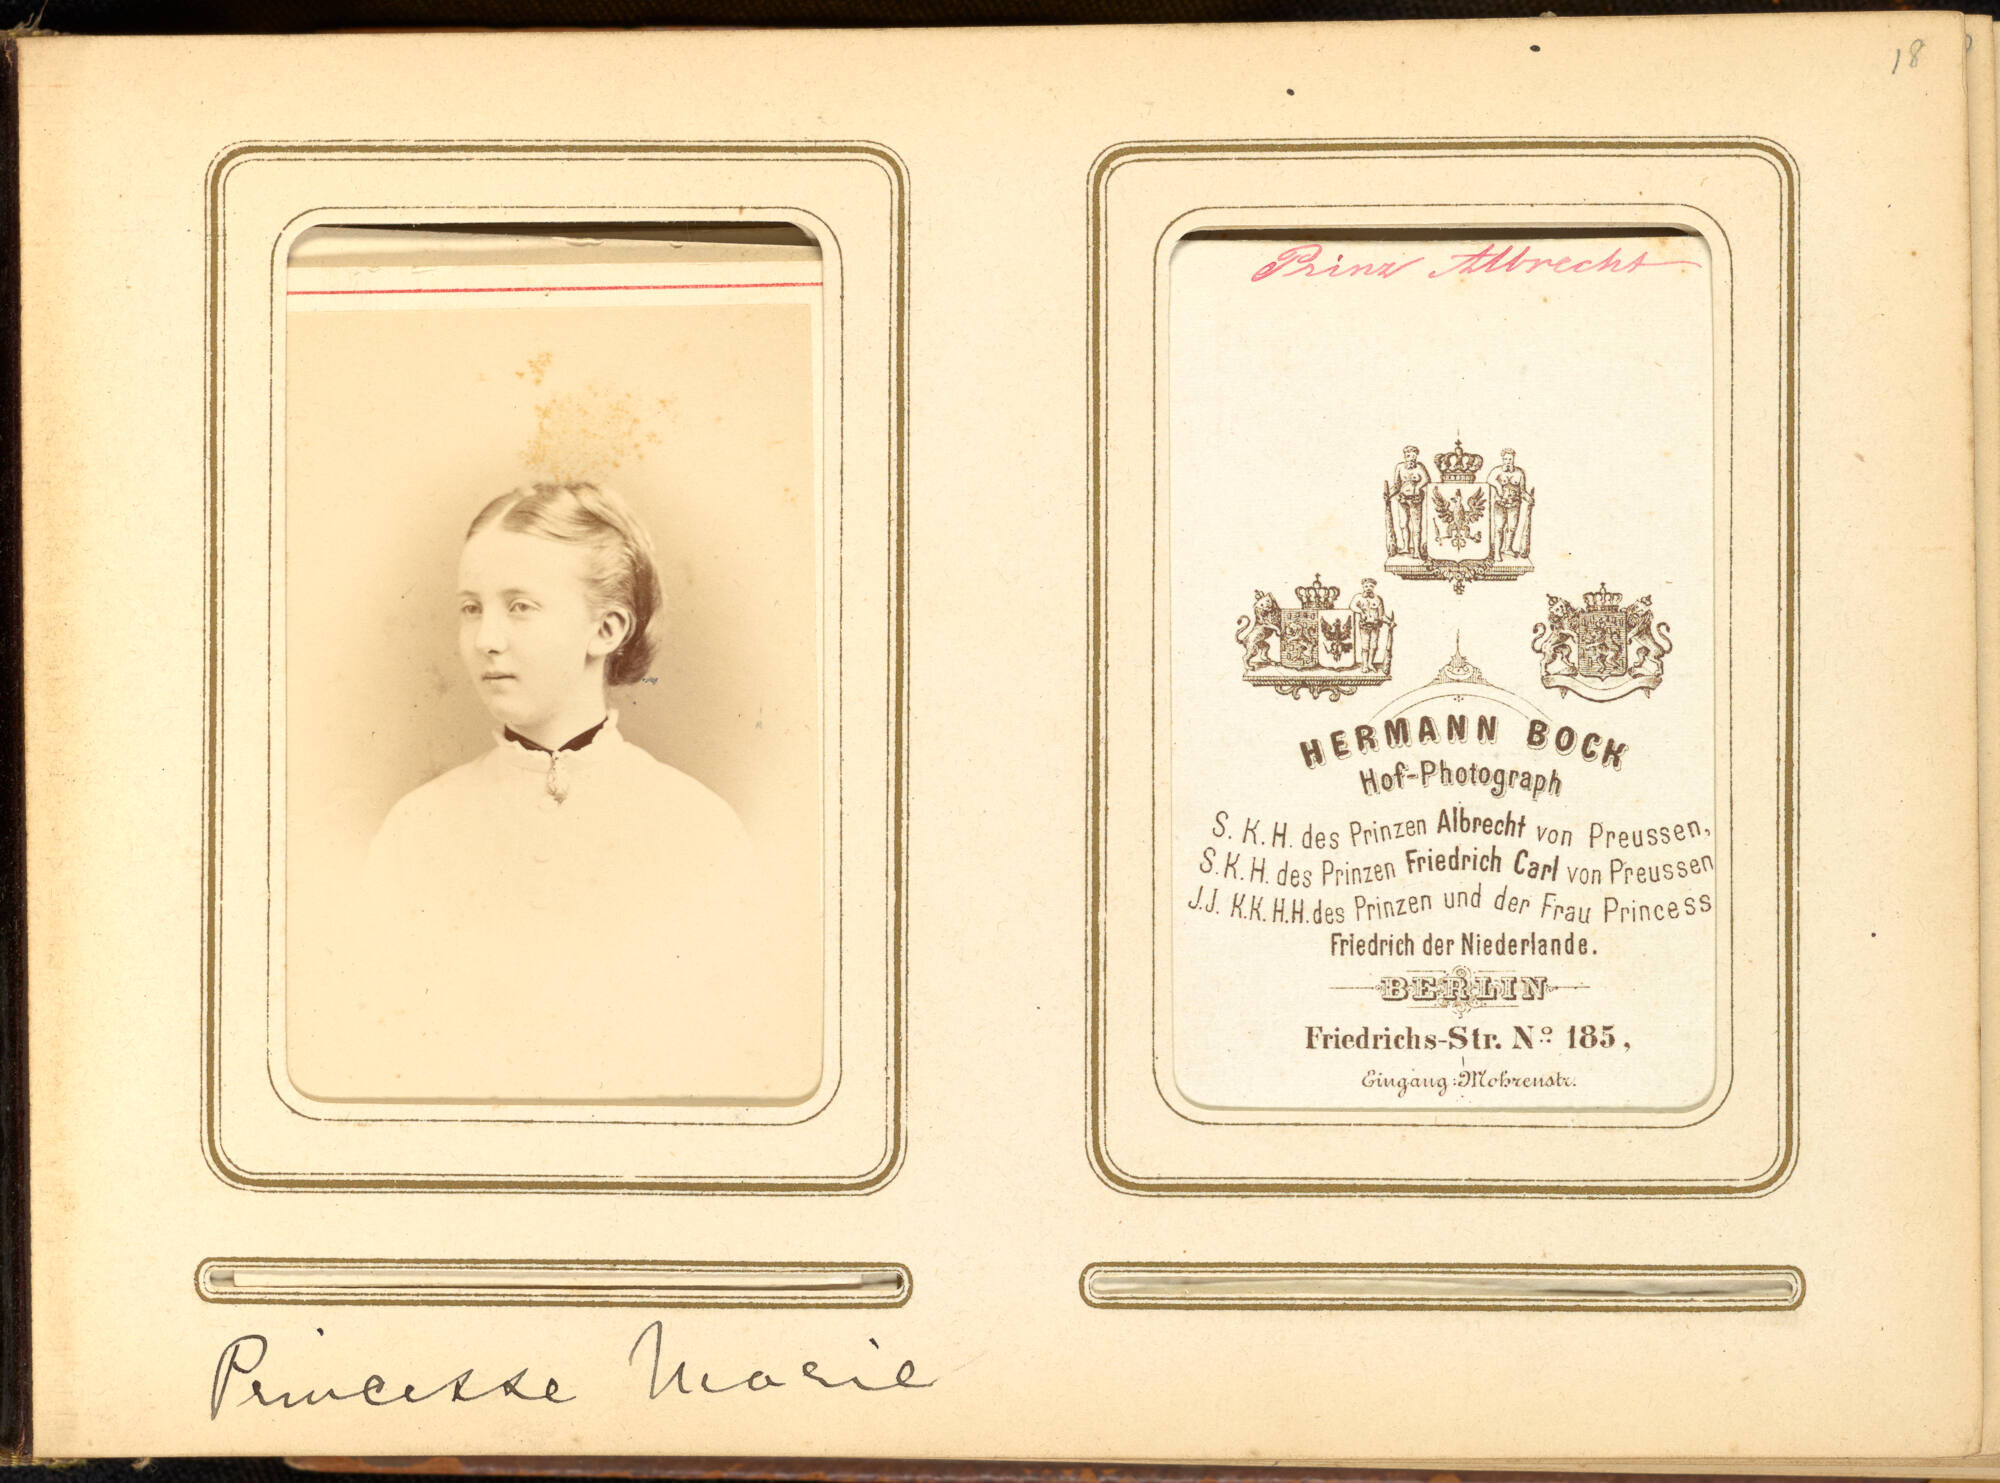 18
Princesse Marie
Prinz Albrecht
HERMANN BOCK
Hof-Photograph
S. K. H. des Prinzen Albrecht von Preussen,
S. K. H. des Prinzen Friedrich Carl von Preussen
J.J. K.K. H.H. des Prinzen und der Frau Princess
Friedrich der Niederlande.
BERLIN
Friedrichs-Str. No 185,
Eingang: Mohrenstr.